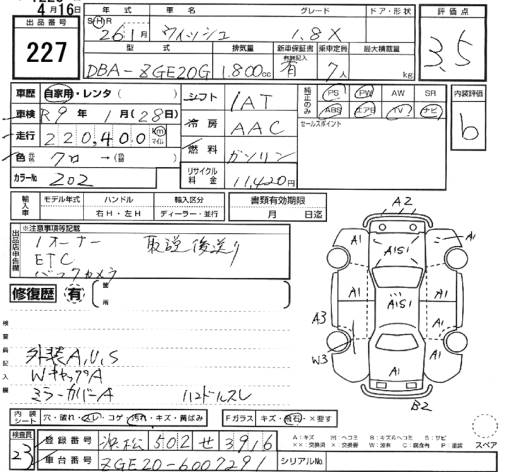 4月16日
出品番号 227
年式 車名 グレード ドア・形状 評価点
SH 26 1月 ウィッシュ 1.8X 3.5
型式 排気量 新車保証書 乗車定員 最大積載量
DBA-ZGE20G 1,800cc 有 7人 kg
車歴 自家用・レンタ( ) シフト 1AT 純正のみ PS PW AW SR 内装評価
車検 R9年1月(28日) 冷房 AAC ABS エアB TV ナビ b
走行 220,400 Km マイル 燃料 ガソリン セールスポイント
色 クロ → ( )
カラーNo 202 リサイクル料金 11,420円
輸入車 モデル年式 ハンドル 輸入区分 書類有効期限
右H・左H ディーラー・並行 月 日迄
出品店申告欄 ※注意事項等記載
1オーナー 取説後送り
ETC
バックカメラ
修復歴 有 箇所
検査員記入欄
外装A,U,S
WキャップA
ミラーカバーA ハンドルスレ
A2
A1 A1S1 A1
A1 A1S1 A1
A3 A1 A1
W3 A1
B2
内装シート 穴・破れ・スレ・コゲ・汚れ・キズ・黄ばみ Fガラス キズ・飛石・×要す
検査員 23 登録番号 浜松 502 せ 3916
A:キズ U:ヘコミ B:キズ&ヘコミ S:サビ
××:交換済 ×:交換要 W:波有 C:腐食有 P:塗装 スペア
車台番号 ZGE20-6007291 シリアルNo